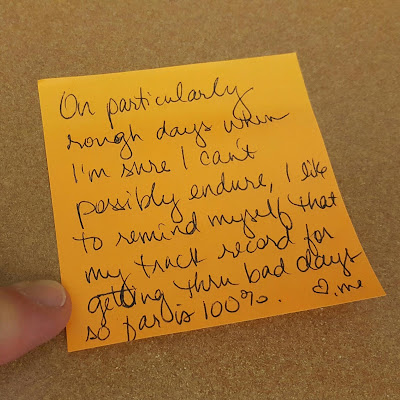 On particularly
rough days when
I'm sure I can't
possibly endure, I like
to remind myself that
my track record for
getting thru bad days
so far is 100%. ♡, me